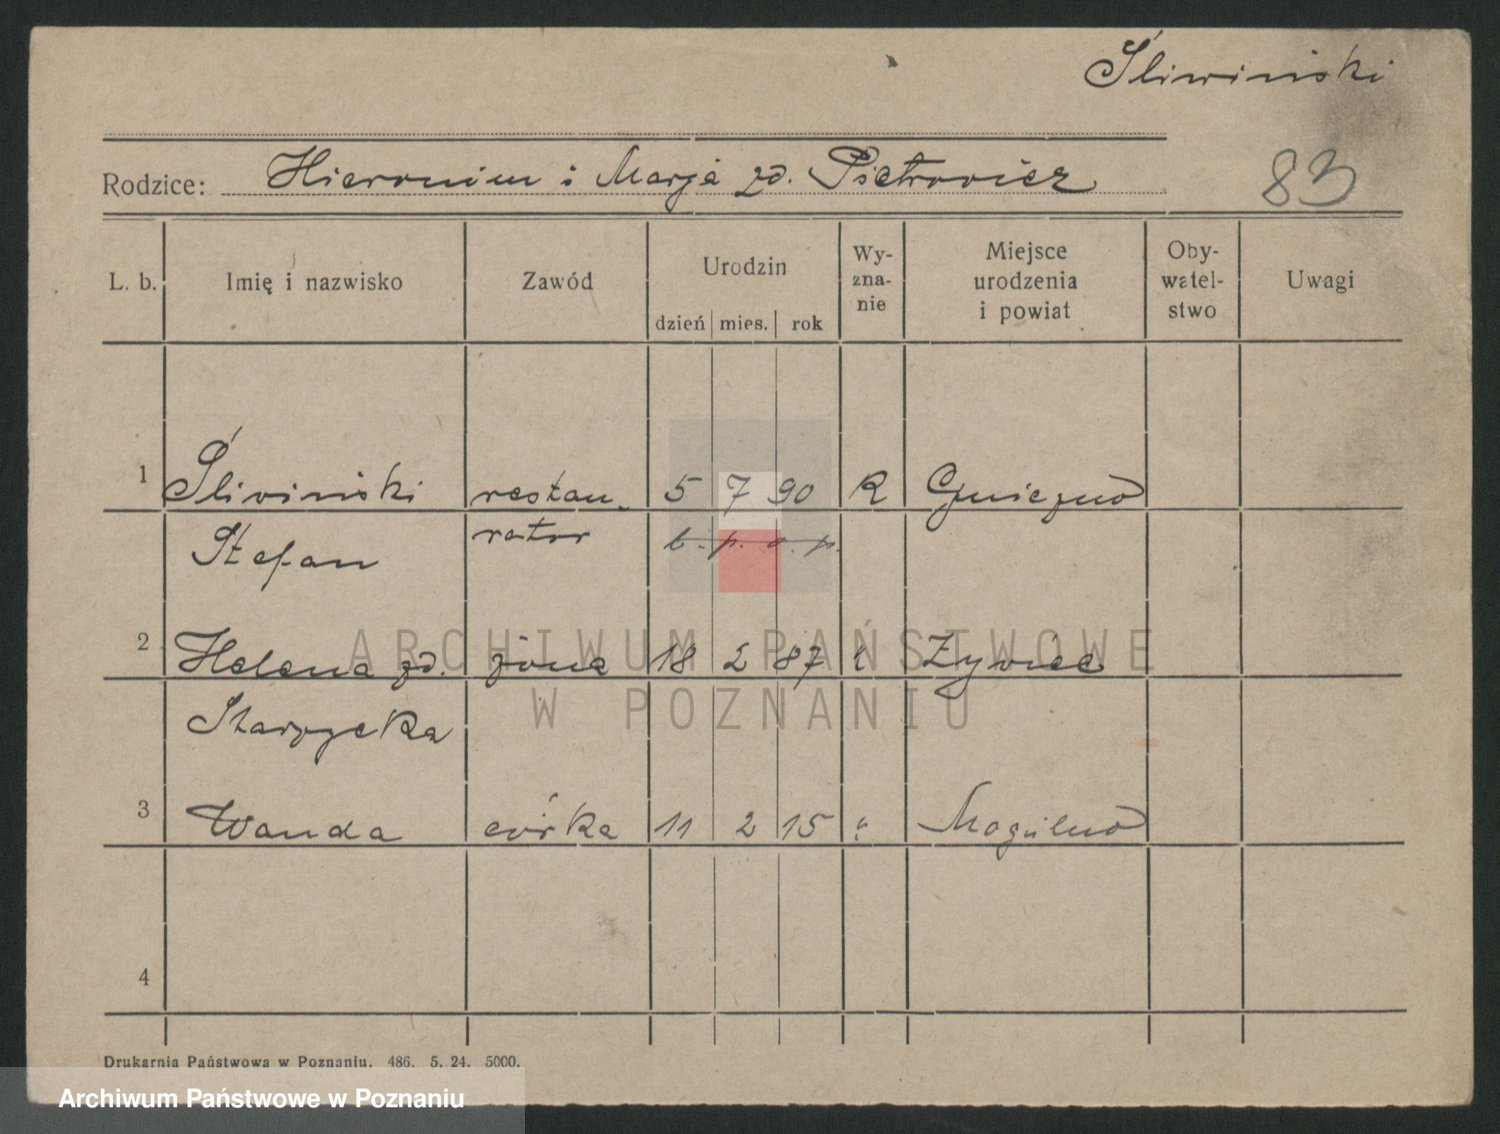 Śliwiński
Rodzice: Hieronim i Marja zd. Pietrowicz
83
L. b. Imię i nazwisko Zawód Urodzin dzień mies. rok Wy-zna-nie Miejsce urodzenia i powiat Oby-watel-stwo Uwagi
1 Śliwiński restau- 5 7 90 R Gniezno
Stefan rator b. p. o. p.
2 Helena zd. żona 18 2 87 " Żywiec
Starzycka
3 Wanda córka 11 2 15 " Mogilno
4
ARCHIWUM PAŃSTWOWE
W POZNANIU
Drukarnia Państwowa w Poznaniu. 486. 5. 24. 5000.
Archiwum Państwowe w Poznaniu